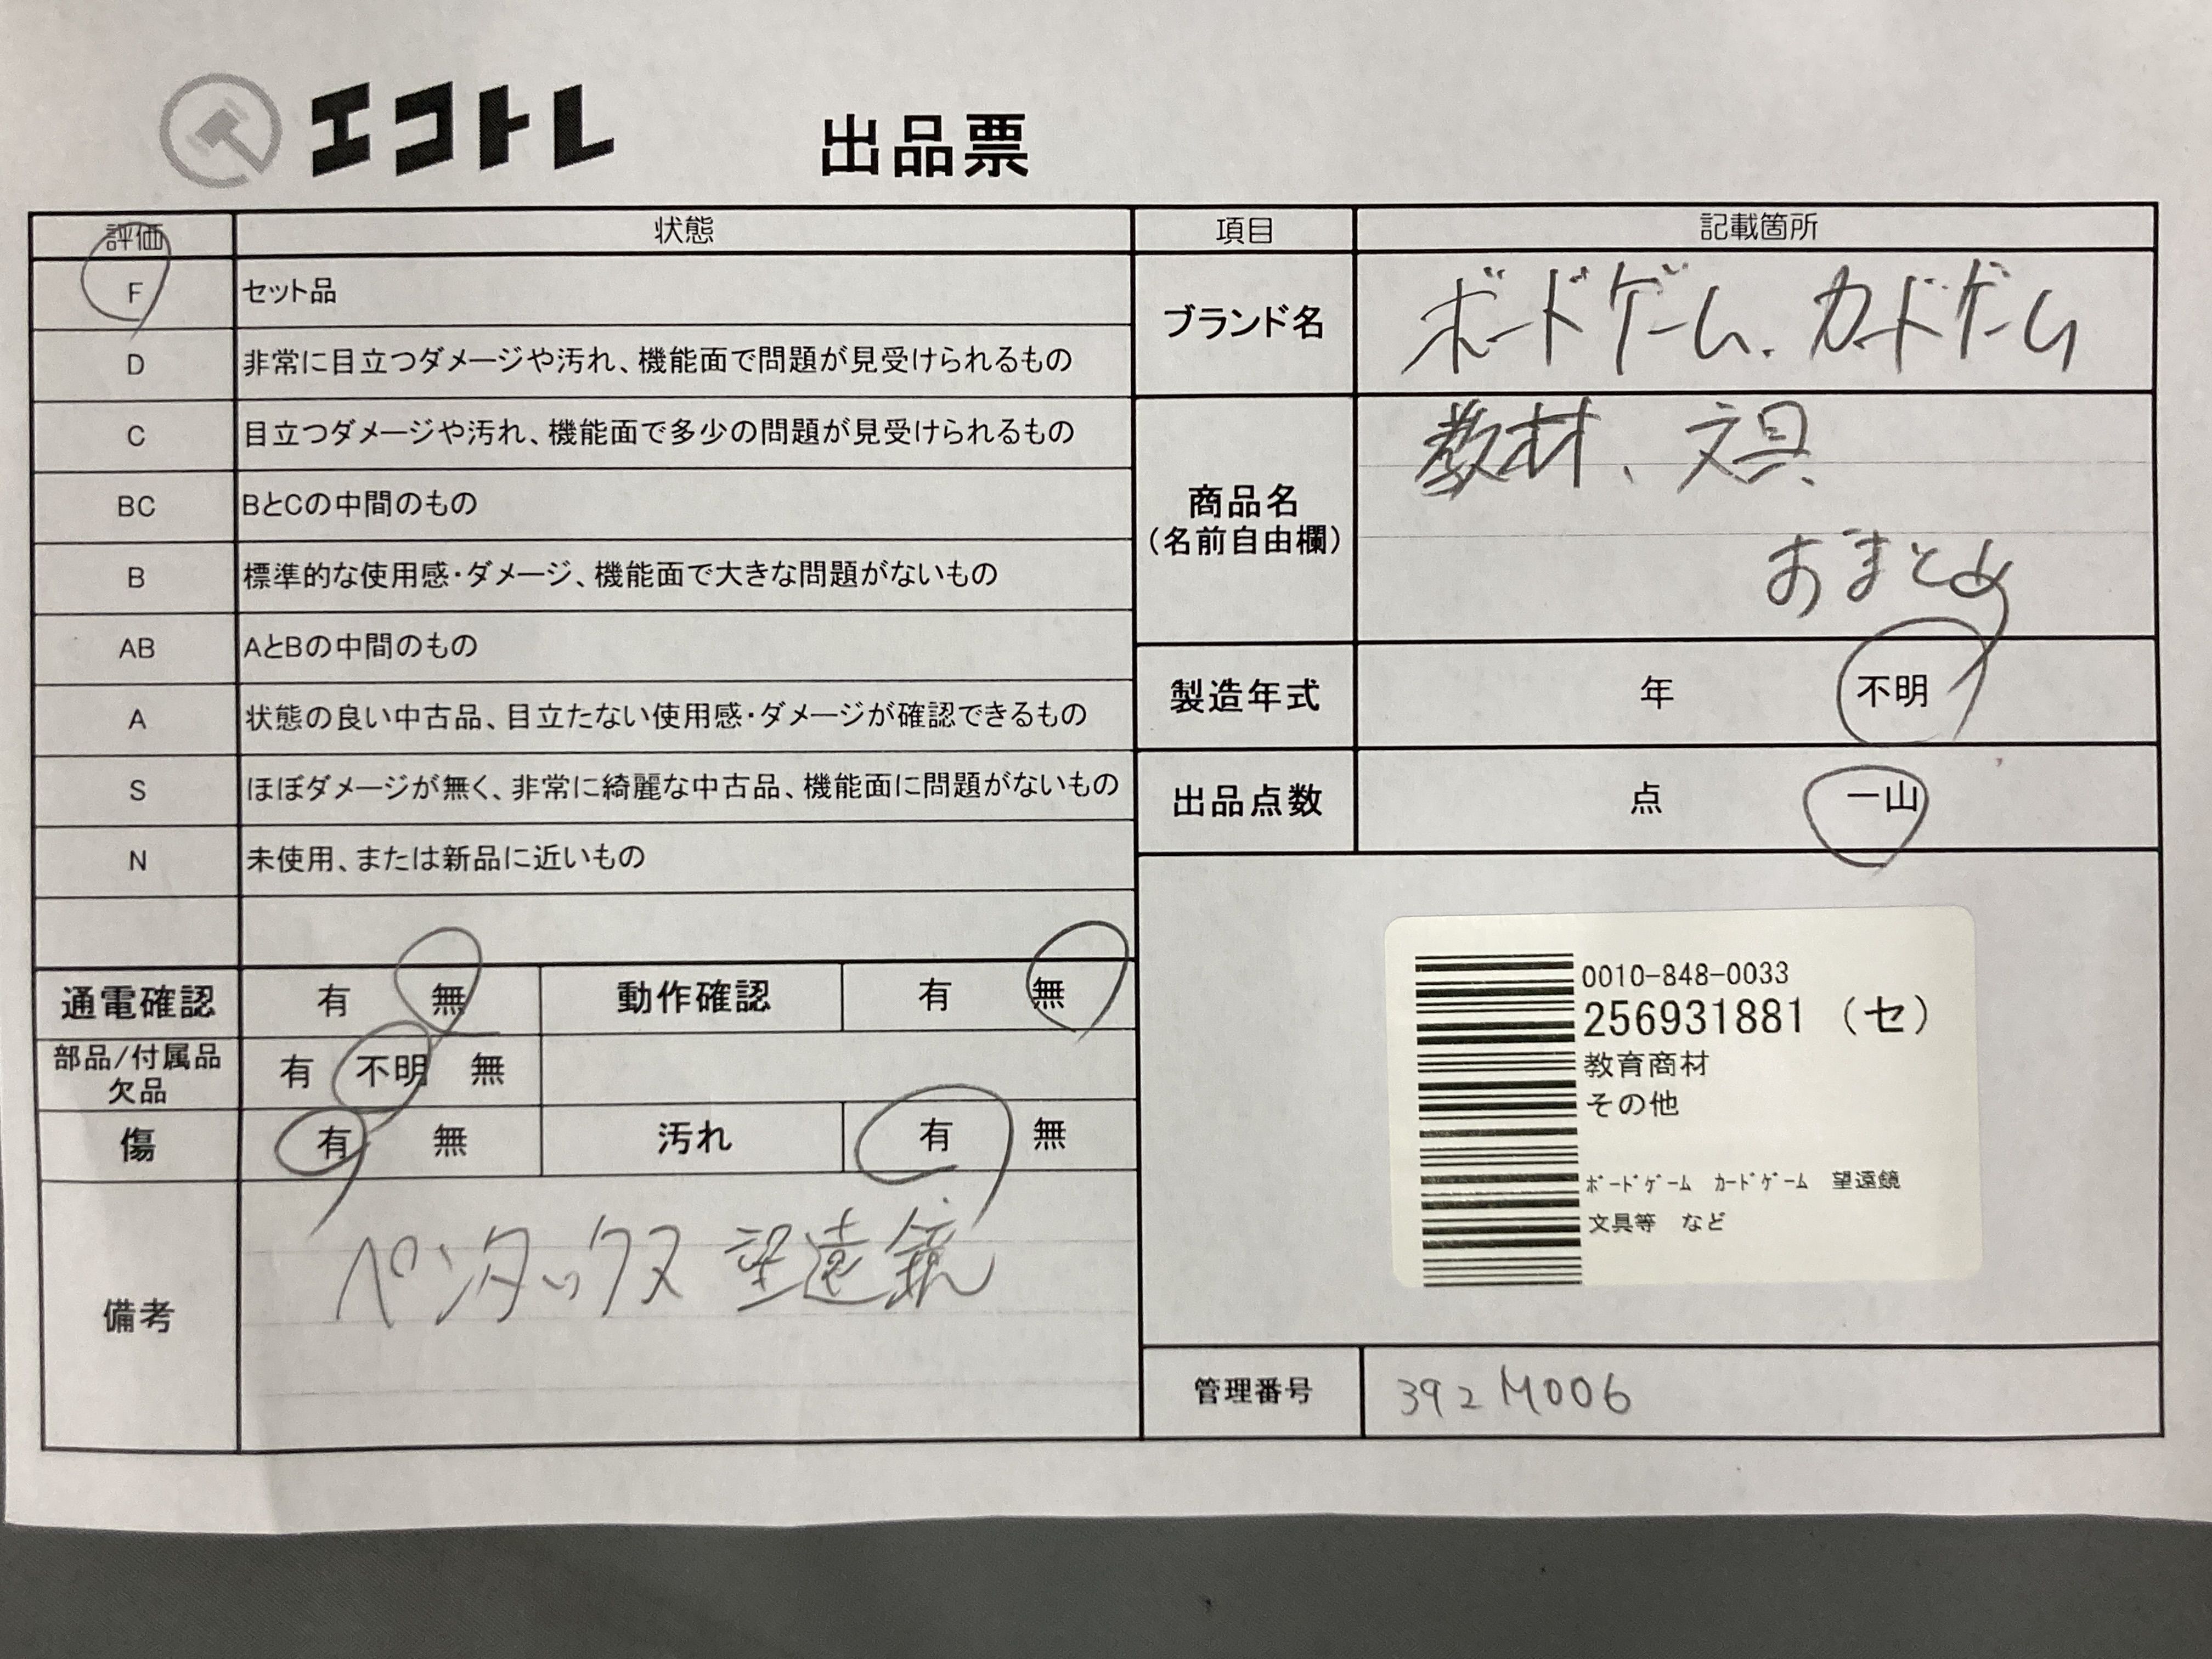 エコトレ 出品票
評価 状態
F セット品
D 非常に目立つダメージや汚れ、機能面で問題が見受けられるもの
C 目立つダメージや汚れ、機能面で多少の問題が見受けられるもの
BC BとCの中間のもの
B 標準的な使用感・ダメージ、機能面で大きな問題がないもの
AB AとBの中間のもの
A 状態の良い中古品、目立たない使用感・ダメージが確認できるもの
S ほぼダメージが無く、非常に綺麗な中古品、機能面に問題がないもの
N 未使用、または新品に近いもの
通電確認 有 無 動作確認 有 無
部品/付属品
欠品 有 不明 無
傷 有 無 汚れ 有 無
備考 ペンタックス 望遠鏡
項目 記載箇所
ブランド名 ボードゲーム、カードゲーム
商品名
(名前自由欄)
教材、文具、
おまとめ
製造年式 年 不明
出品点数 点 一山
0010-848-0033
256931881 (セ)
教育商材
その他
ﾎﾞｰﾄﾞｹﾞｰﾑ ｶｰﾄﾞｹﾞｰﾑ 望遠鏡
文具等 など
管理番号 392M006